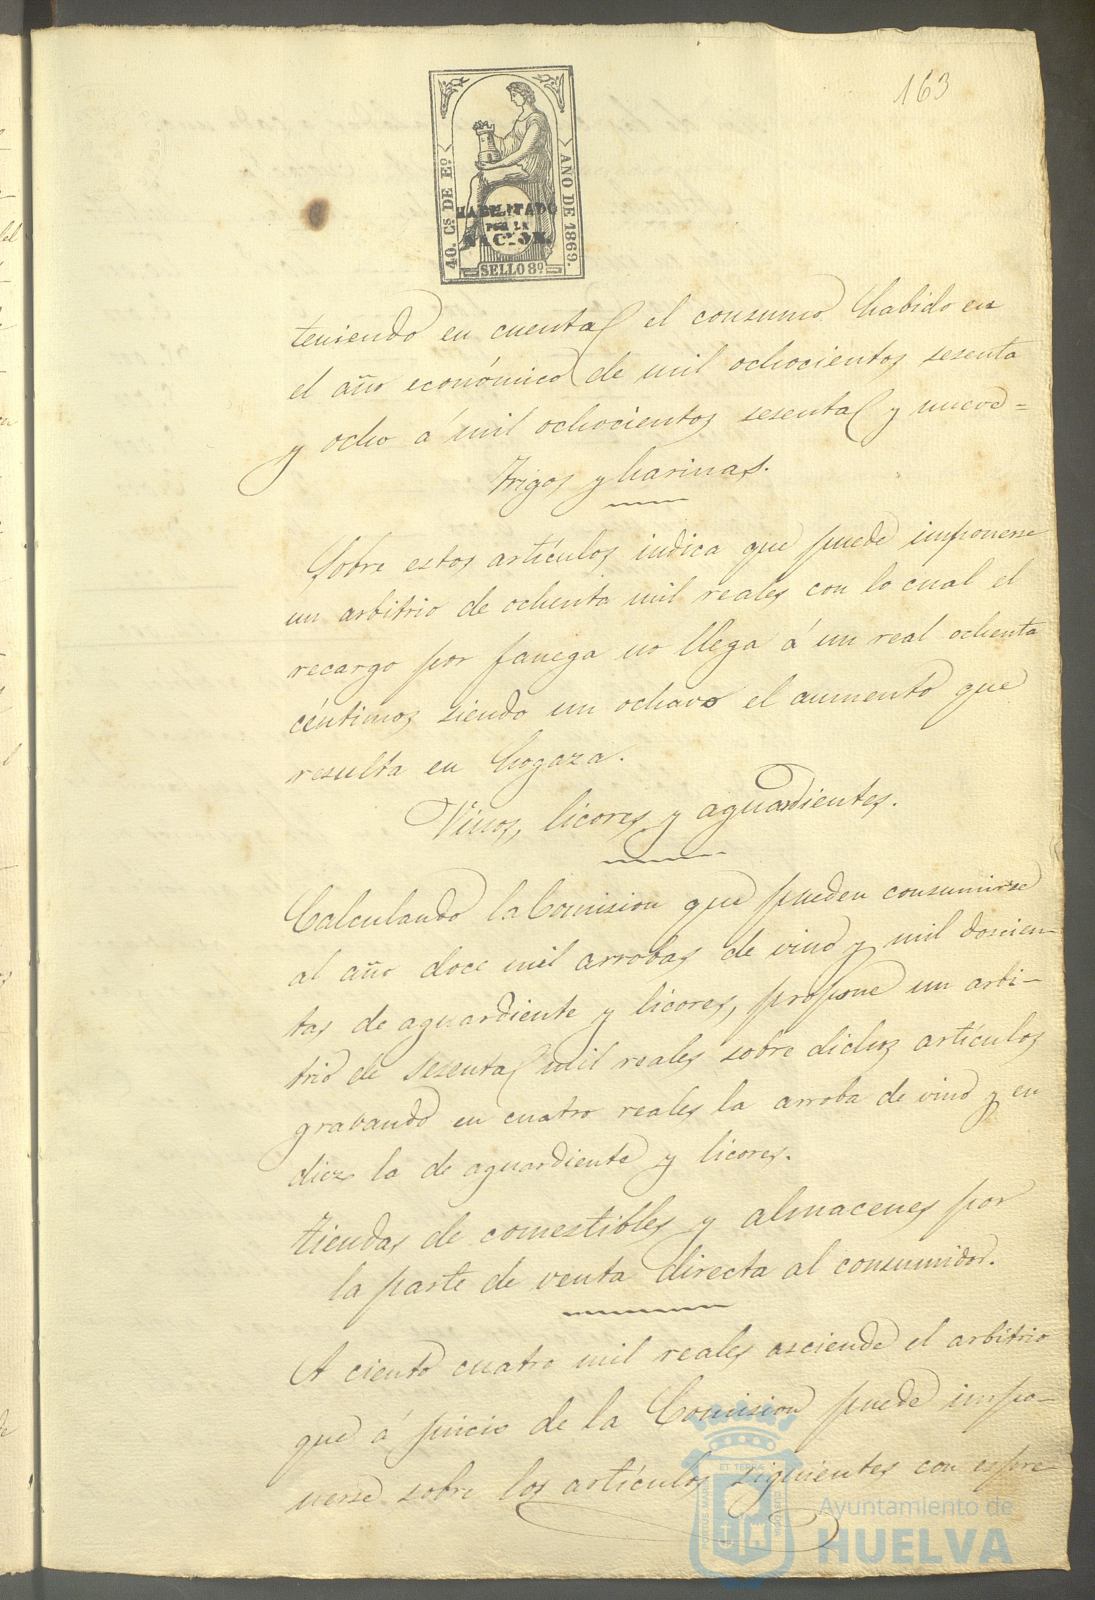 163
40. Cs DE Eo.
AÑO DE 1869.
HABILITADO
POR LA
NACION.
SELLO 8º
teniendo en cuenta el consumo habido en
el año económico de mil ochocientos sesenta
y ocho á mil ochocientos sesenta y nueve=
Trigos y harinas.
Sobre estos artículos indica que puede imponerse
un arbitrio de ochenta mil reales con lo cual el
recargo por fanega no llega á un real ochenta
céntimos siendo un ochavo el aumento que
resulta en hogaza.
Vinos, licores y aguardientes.
Calculando la Comision que pueden consumirse
al año doce mil arrobas de vino y mil doscien-
tas de aguardiente y licores, propone un arbi-
trio de sesenta mil reales sobre dichos artículos
gravando en cuatro reales la arroba de vino y en
diez la de aguardiente y licores.
Tiendas de comestibles y almacenes por
la parte de venta directa al consumidor.
A ciento cuatro mil reales asciende el arbitrio
que á juicio de la Comision puede impo-
nerse sobre los artículos siguientes con espre
PORTUS MARIS ET TERRÆ
Ayuntamiento de
HUELVA